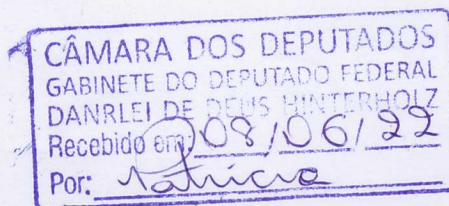 CÂMARA DOS DEPUTADOS
GABINETE DO DEPUTADO FEDERAL
DANRLEI DE DEUS HINTERHOLZ
Recebido em: 08/06/22
Por: Patricia